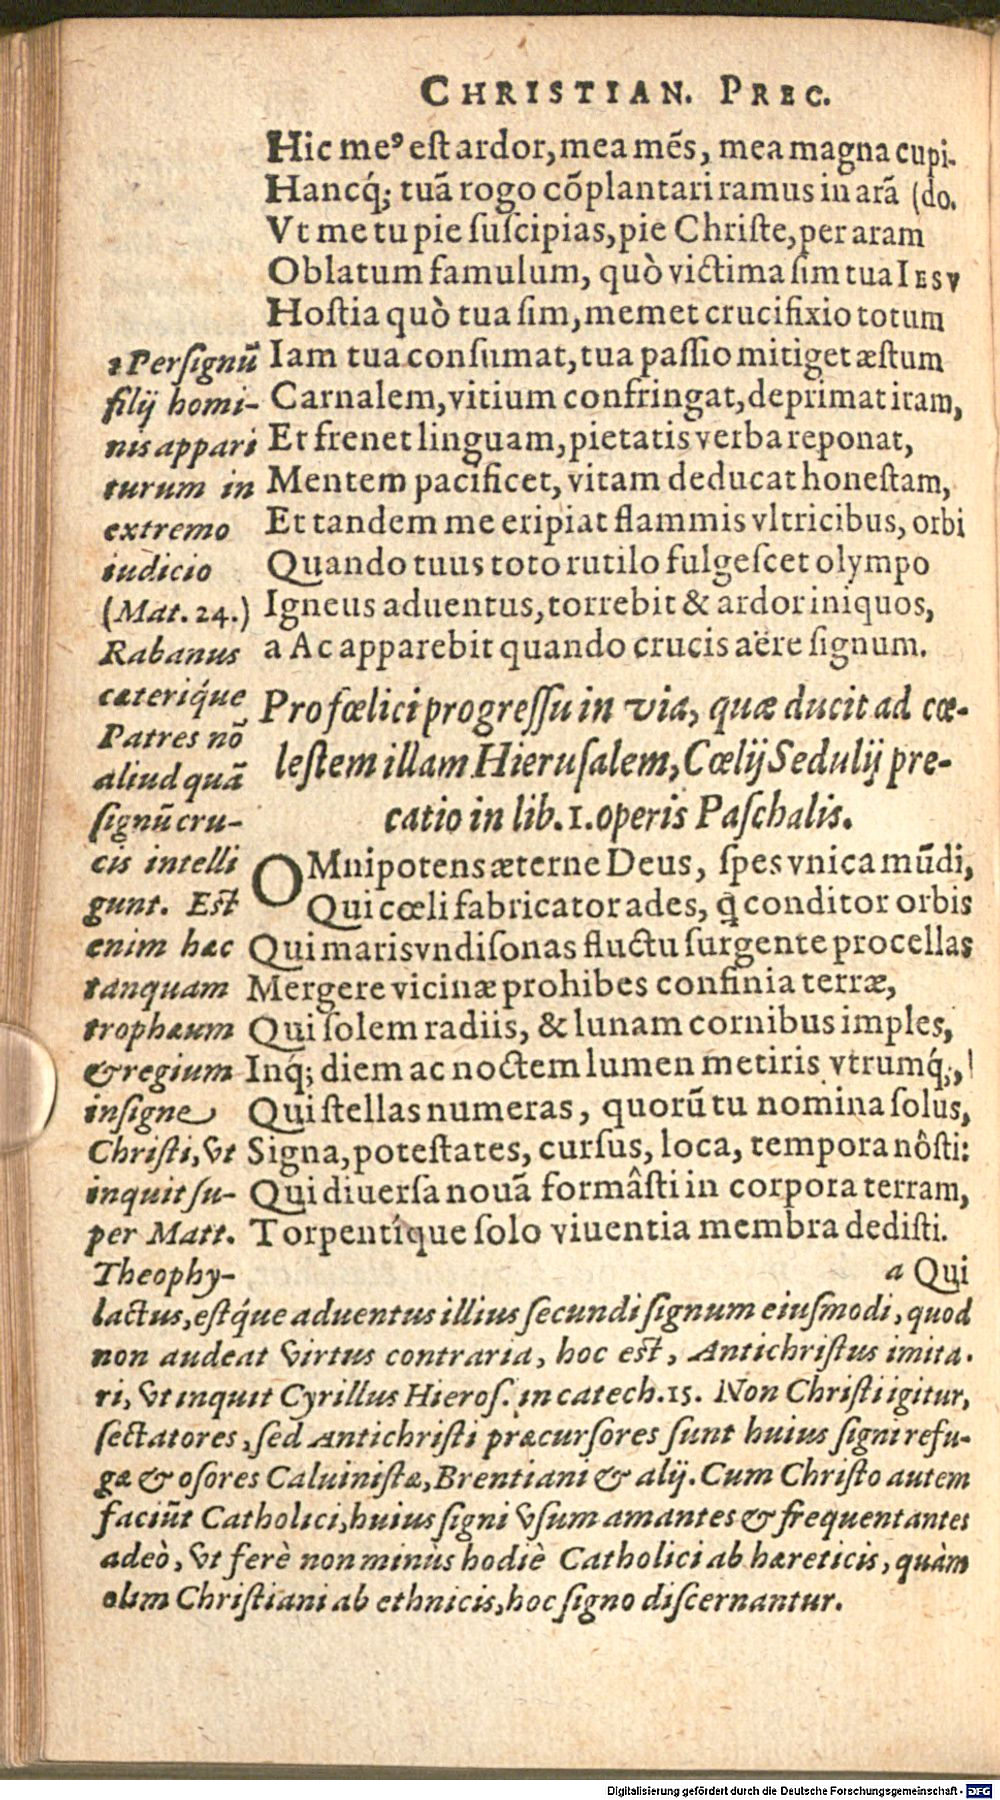 CHRISTIAN. PREC.
Hic me⁹ est ardor, mea mẽs, mea magna cupi-
Hancq́; tuã rogo cõplantari ramus in arã (do.
Vt me tu pie suscipias, pie Christe, per aram
Oblatum famulum, quò victima sim tua IESV
Hostia quò tua sim, memet crucifixio totum
Iam tua consumat, tua passio mitiget æstum
Carnalem, vitium confringat, deprimat iram,
Et frenet linguam, pietatis verba reponat,
Mentem pacificet, vitam deducat honestam,
Et tandem me eripiat flammis vltricibus, orbi
Quando tuus toto rutilo fulgescet olympo
Igneus aduentus, torrebit & ardor iniquos,
a Ac apparebit quando crucis aëre signum.
Pro fœlici progressu in via, quæ ducit ad cœ-
lestem illam Hierusalem, Cœlij Sedulij pre-
catio in lib. 1. operis Paschalis.
OMnipotens æterne Deus, spes vnica mũdi,
Qui cœli fabricator ades, q̃ conditor orbis
Qui maris vndisonas fluctu surgente procellas
Mergere vicinæ prohibes confinia terræ,
Qui solem radiis, & lunam cornibus imples,
Inq́; diem ac noctem lumen metiris vtrumq́;,
Qui stellas numeras, quorũ tu nomina solus,
Signa, potestates, cursus, loca, tempora nôsti:
Qui diuersa nouã formâsti in corpora terram,
Torpentíque solo viuentia membra dedisti.
a Qui
a Per signũ
filij homi-
nis appari
turum in
extremo
iudicio
(Mat. 24.)
Rabanus
cæteriq́ue
Patres nõ
aliud quã
signũ cru-
cis intelli
gunt. Est
enim hæc
tanquam
trophæum
& regium
insigne
Christi, vt
inquit su-
per Matt.
Theophy-
lactus, estq́ue aduentus illius secundi signum eiusmodi, quod
non audeat virtus contraria, hoc est, Antichristus imita-
ri, vt inquit Cyrillus Hieros. in catech. 15. Non Christi igitur,
sectatores, sed Antichristi præcursores sunt huius signi refu-
gæ & osores Caluinistæ, Brentiani & alij. Cum Christo autem
faciũt Catholici, huius signi vsum amantes & frequentantes
adeò, vt ferè non minùs hodiè Catholici ab hæreticis, quàm
olim Christiani ab ethnicis, hoc signo discernantur.
Digitalisierung gefördert durch die Deutsche Forschungsgemeinschaft - DFG